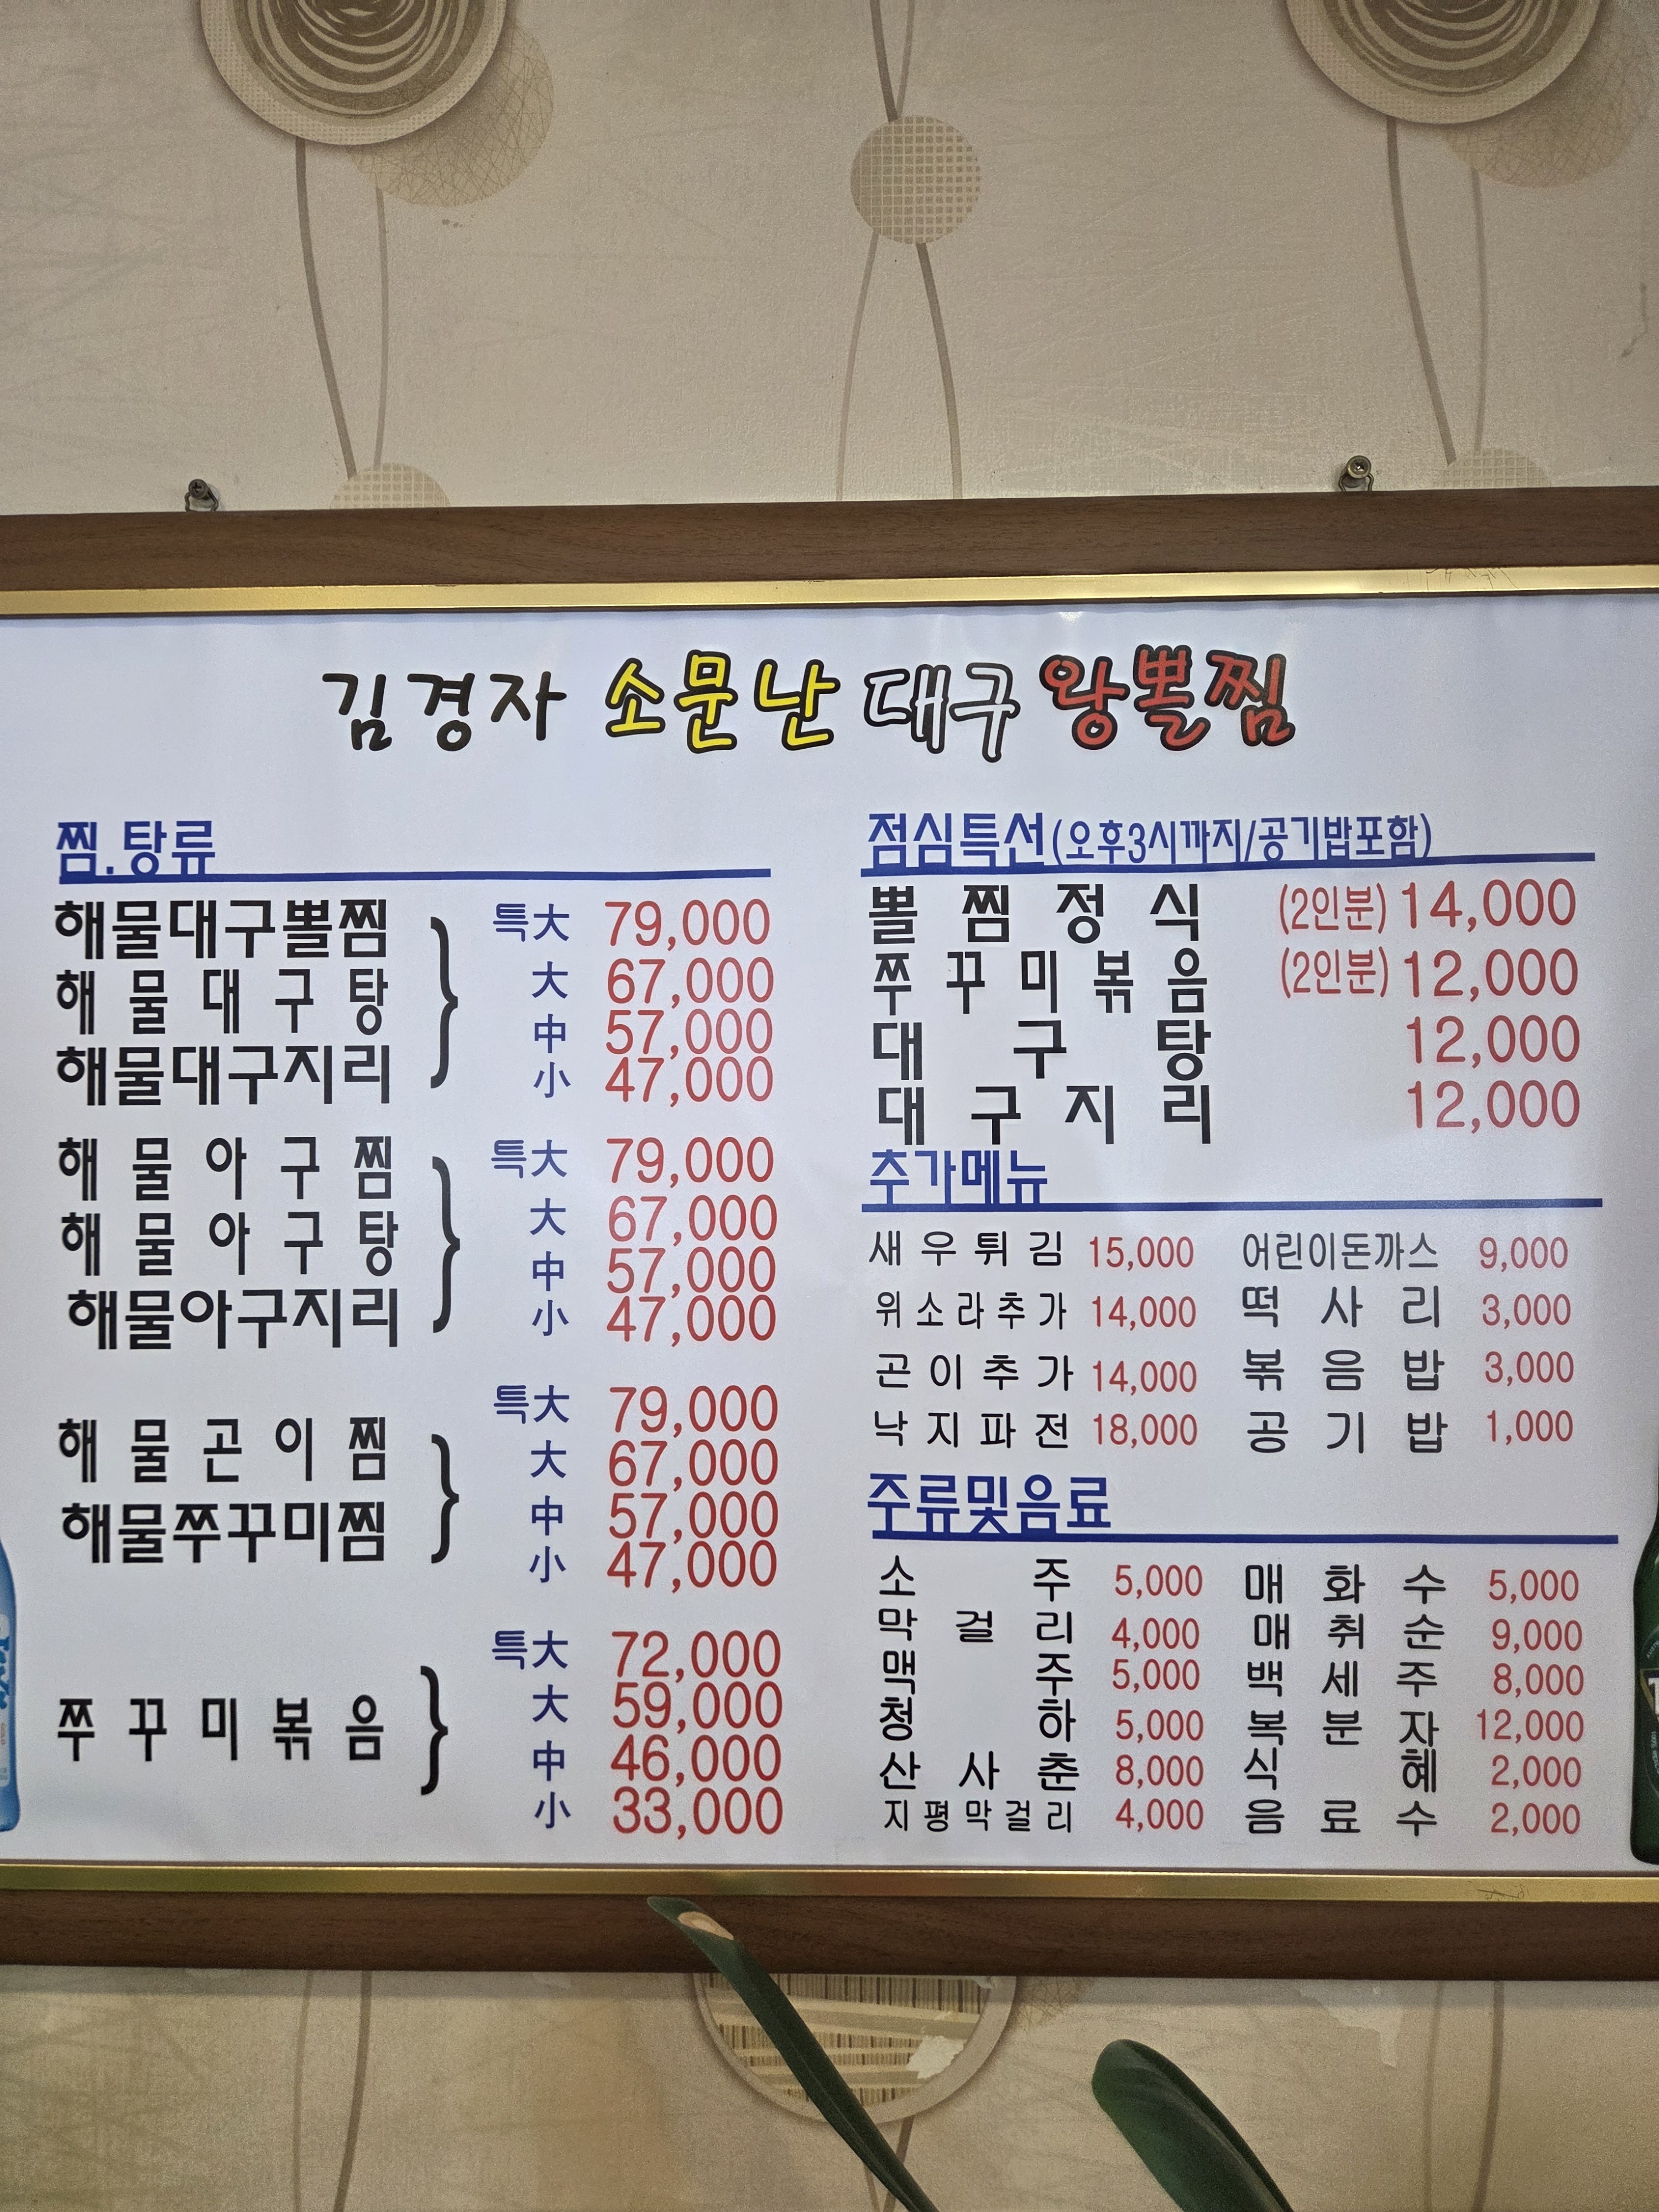 김경자 소문난 대구 왕뽈찜
찜.탕류
해물대구뽈찜
해물대구탕
해물대구지리
}
특大 79,000
大 67,000
中 57,000
小 47,000
해물아구찜
해물아구탕
해물아구지리
}
특大 79,000
大 67,000
中 57,000
小 47,000
해물곤이찜
해물쭈꾸미찜
}
특大 79,000
大 67,000
中 57,000
小 47,000
쭈꾸미볶음
}
특大 72,000
大 59,000
中 46,000
小 33,000
점심특선(오후3시까지/공기밥포함)
뽈찜정식 (2인분) 14,000
쭈꾸미볶음 (2인분) 12,000
대구탕 12,000
대구지리 12,000
추가메뉴
새우튀김 15,000 어린이돈까스 9,000
위소라추가 14,000 떡사리 3,000
곤이추가 14,000 볶음밥 3,000
낙지파전 18,000 공기밥 1,000
주류및음료
소주 5,000 매화수 5,000
막걸리 4,000 매취순 9,000
맥주 5,000 백세주 8,000
청하 5,000 복분자 12,000
산사춘 8,000 식혜 2,000
지평막걸리 4,000 음료수 2,000